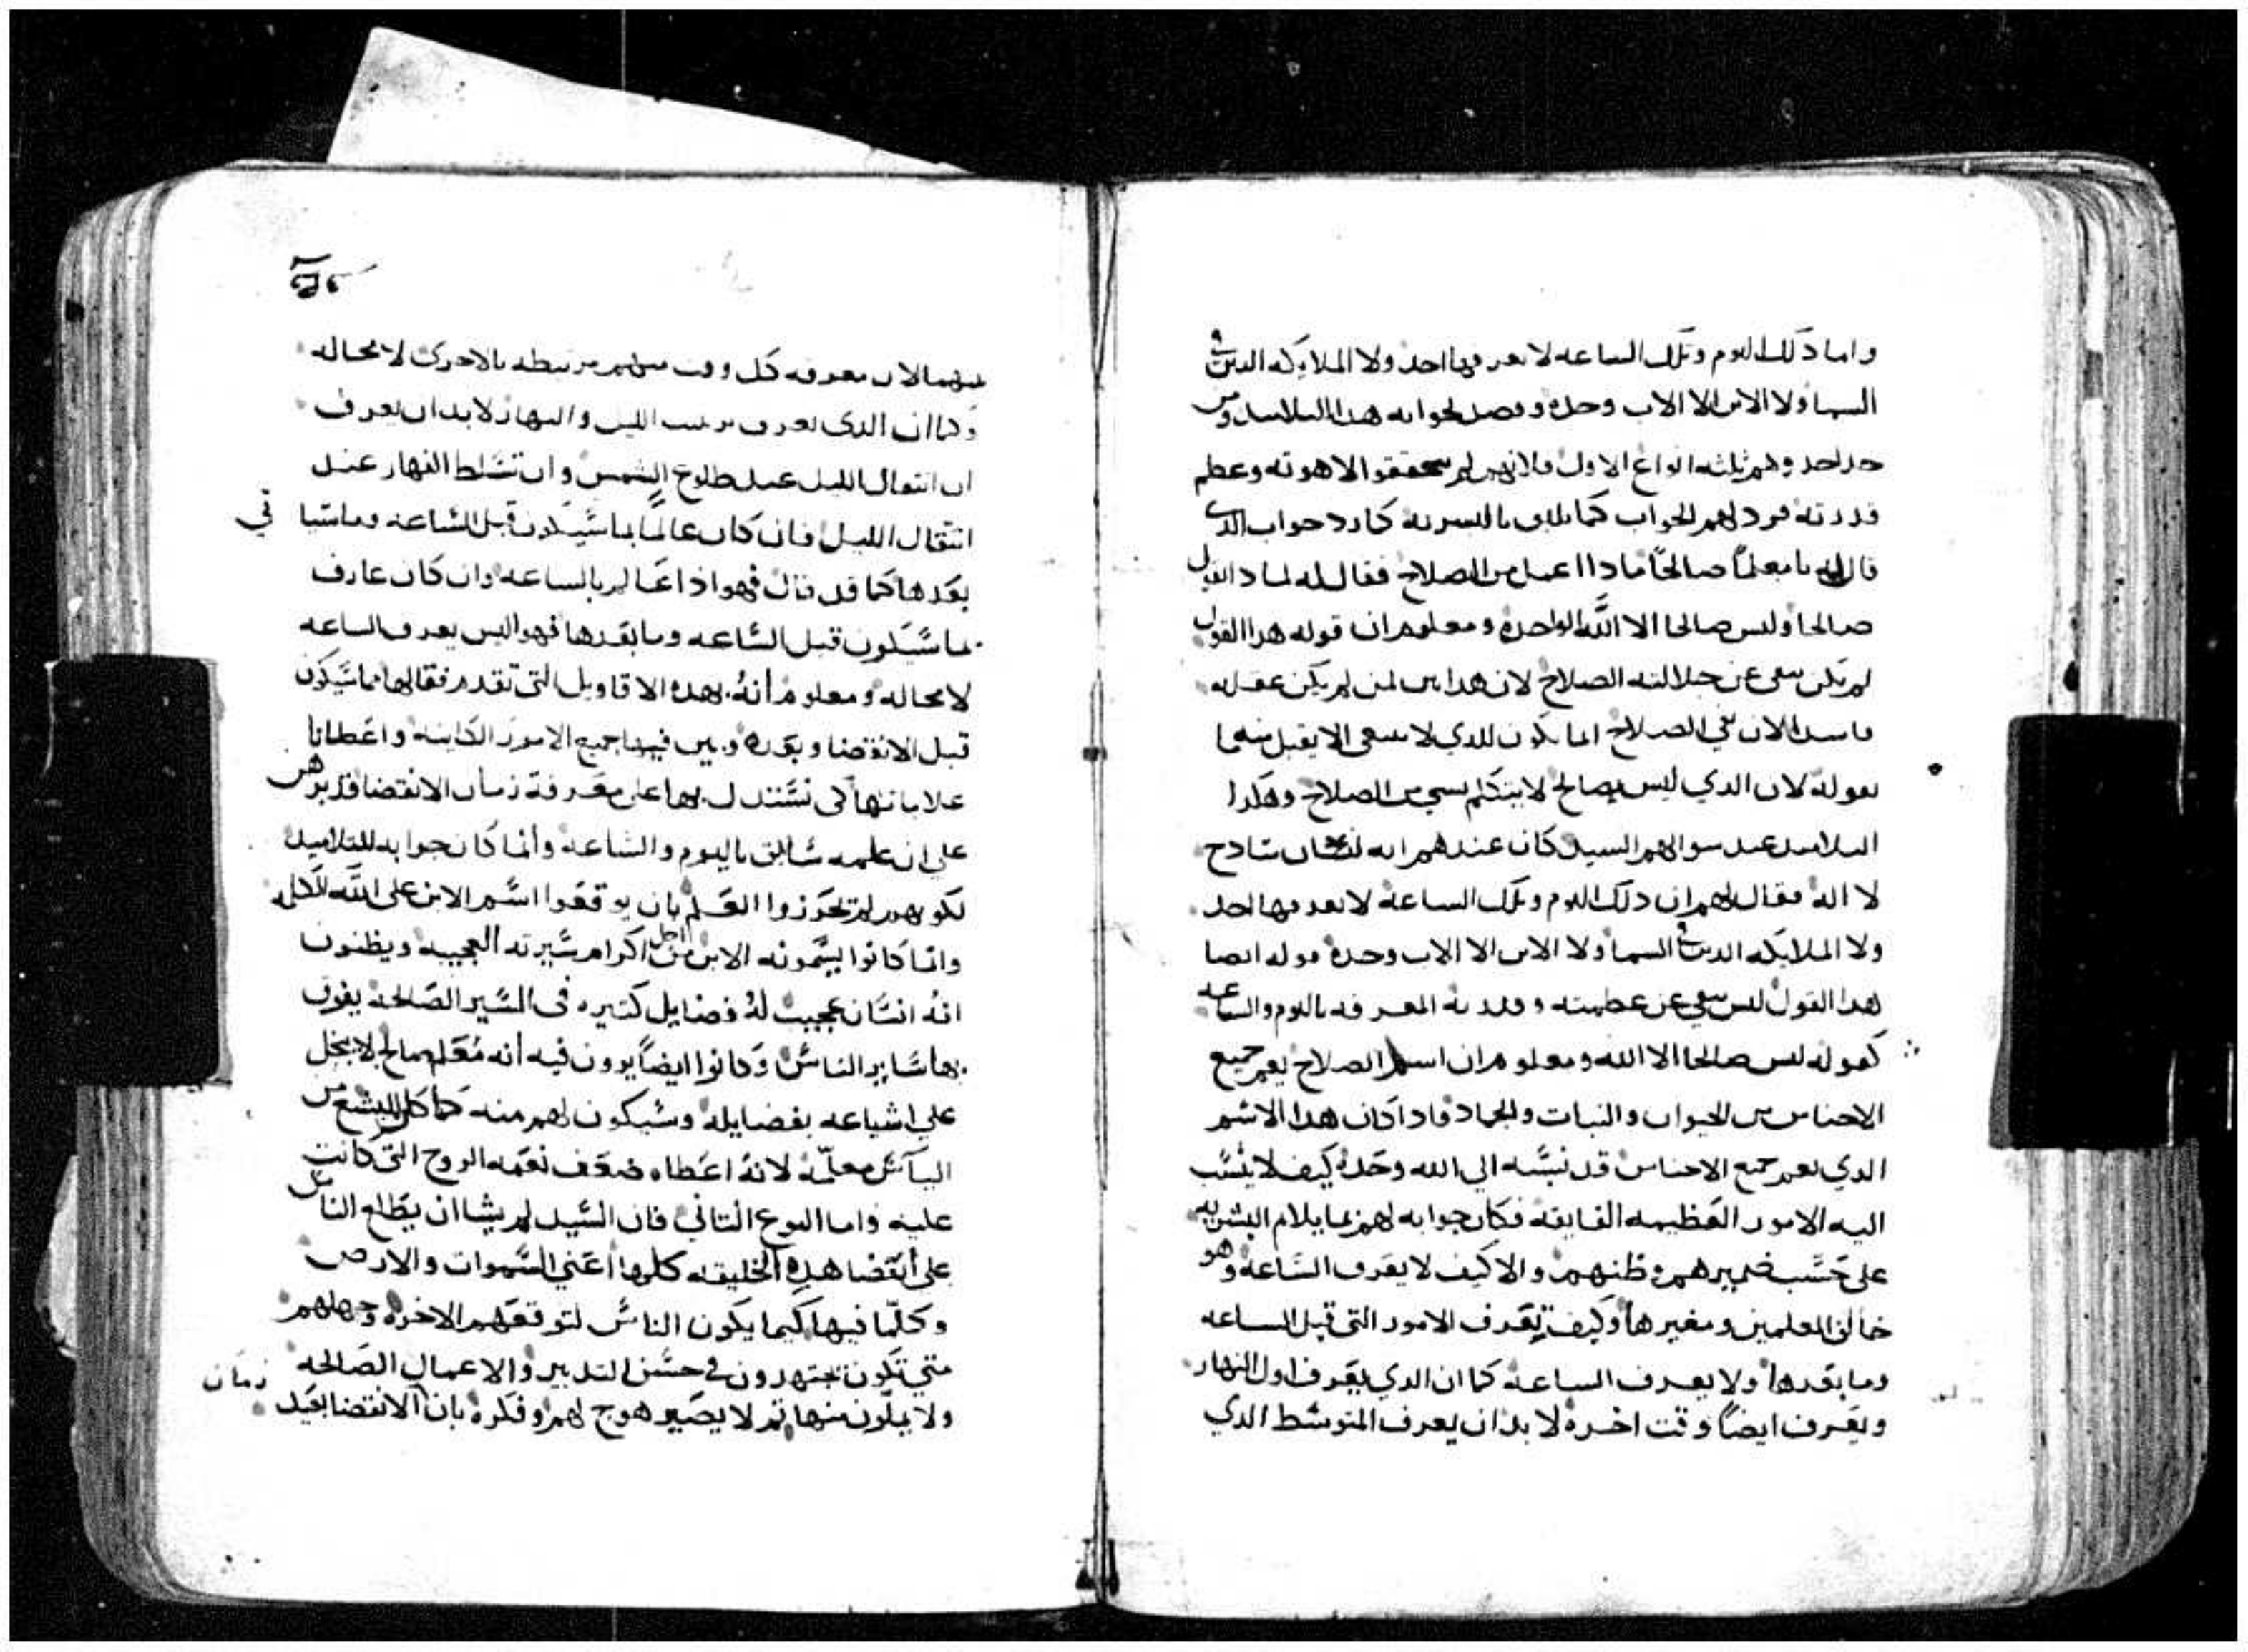 واما ذلك اليوم وتلك الساعه لا يعرفها احد ولا الملايكه الدين في
السما ولا الابن الا الاب وحده وقصد بجوابه هدا التلاميد ومن
حد احد وهم ثلثه انواع الاول فلانهم لم يتحققوا الاهوته وعظم
قدرته فرد لهم الجواب كما يليق بالبشريه كما رد جواب الدي
قال له يا معلماً صالحاً مادا اعمل من الصلاح فقال له لمادا تقول
صالحا وليس صالحا الا الله الواحد ومعلوم ان قوله هدا القول
لم يكن ينفي عن جلالته الصلاح لان هدا بين لمن لم يكن عقله
فاسد الان نفي الصلاح انما يكون للدي لا ينبغي الا يقبل منه ما
يقوله لان الدي ليس بصالح لا يتكلم بشي من الصلاح وهكدا
التلاميد عند سوالهم السيد كان عندهم انه انسان سادج
لا اله فقال لهم ان دلك اليوم وتلك الساعة لا يعرفها احد
ولا الملايكه الدين في السما ولا الابن الا الاب وحده قوله ايضا
هدا القول ليس ينفي عن عظمته وقدرته المعرفه باليوم والساعه
كقوله ليس صالحا الا الله ومعلوم ان اسم الصلاح يعم جميع
الاجناس من الحيوان والنبات والجماد فادا كان هدا الاسم
الدي يعم جميع الاجناس قد نسبه الي الله وحدهُ كيف لا ينسب
اليه الامور العظيمه الفايقه فكان جوابه لهم بما يلام البشريه
على حسب ضميرهم وظنهم والا كيف لا يعرف الساعة وهو
خالق المعلمين ومغيرها وكيف يعرف الامور التى قبل الساعه
وما بعدها ولا يعرف الساعة كما ان الدي يعرف اول النهار
ويعرف ايضاً وقت اخره لا بد ان يعرف المتوسط الدي
بينهما لان معرفه كل وقت منهم مرتبطه بالاخرى لا محاله
وكما ان الدى يعرف ترتيب الليل والنهار لا بد ان يعرف
ان انتقال الليل عند طلوع الشمس وان تسلط النهار عند
انتقال الليل فان كان عالماً بما سيكون قبل الساعه وما سيا في
بعدها كما قد قال فهو اذا عالم بالساعه وان كان عارف
بما سيكون قبل الساعه وما بعدها فهو اليس يعرف الساعه
لا محاله ومعلوم أنهُ بهده الاقاويل التى تقدم فقالها بما سيكون
قبل الانقضا وبعده وبين فيها جميع الامور الكاينه واعطانا
علاماتها لكى نستدل بها على معرفة زمان الانقضا قد برهن
على ان علمه سابق باليوم والساعه وأنما كان جوابه للتلاميد
لكونهم لم تحوزوا العلم بان يوقعوا اسم الابن على الله الكلمه
وانما كانوا يسمونه الابن من اجل اكرام سيرته العجيبه ويظنون
انهُ انسان عجيب لهُ فضايل كثيره فى السير الصالحه يفوق
بها ساير الناس وكانوا ايضاً يرون فيه أنه مُعلم صالح لا يبخل
على اشياعه بفضايله وسيكون لهم منه كما كان لليشع من
الياس معلمه لانهُ اعطاه ضعف نعمه الروح التى كانت
عليه واما النوع الثاني فان السيد لم يشا ان يطلع الناس
على أنقضا هده الخليقه كلها اعني السموات والارض
وكلما فيها كيما يكون الناس لتوقعهم الاخره وجهلهم
متي تكون تجتهدون في حسن التدبير والاعمال الصالحه
ولا يملون منها ثم لا يصير هوج لهم وفكره بان الانقضا بعيد زمان